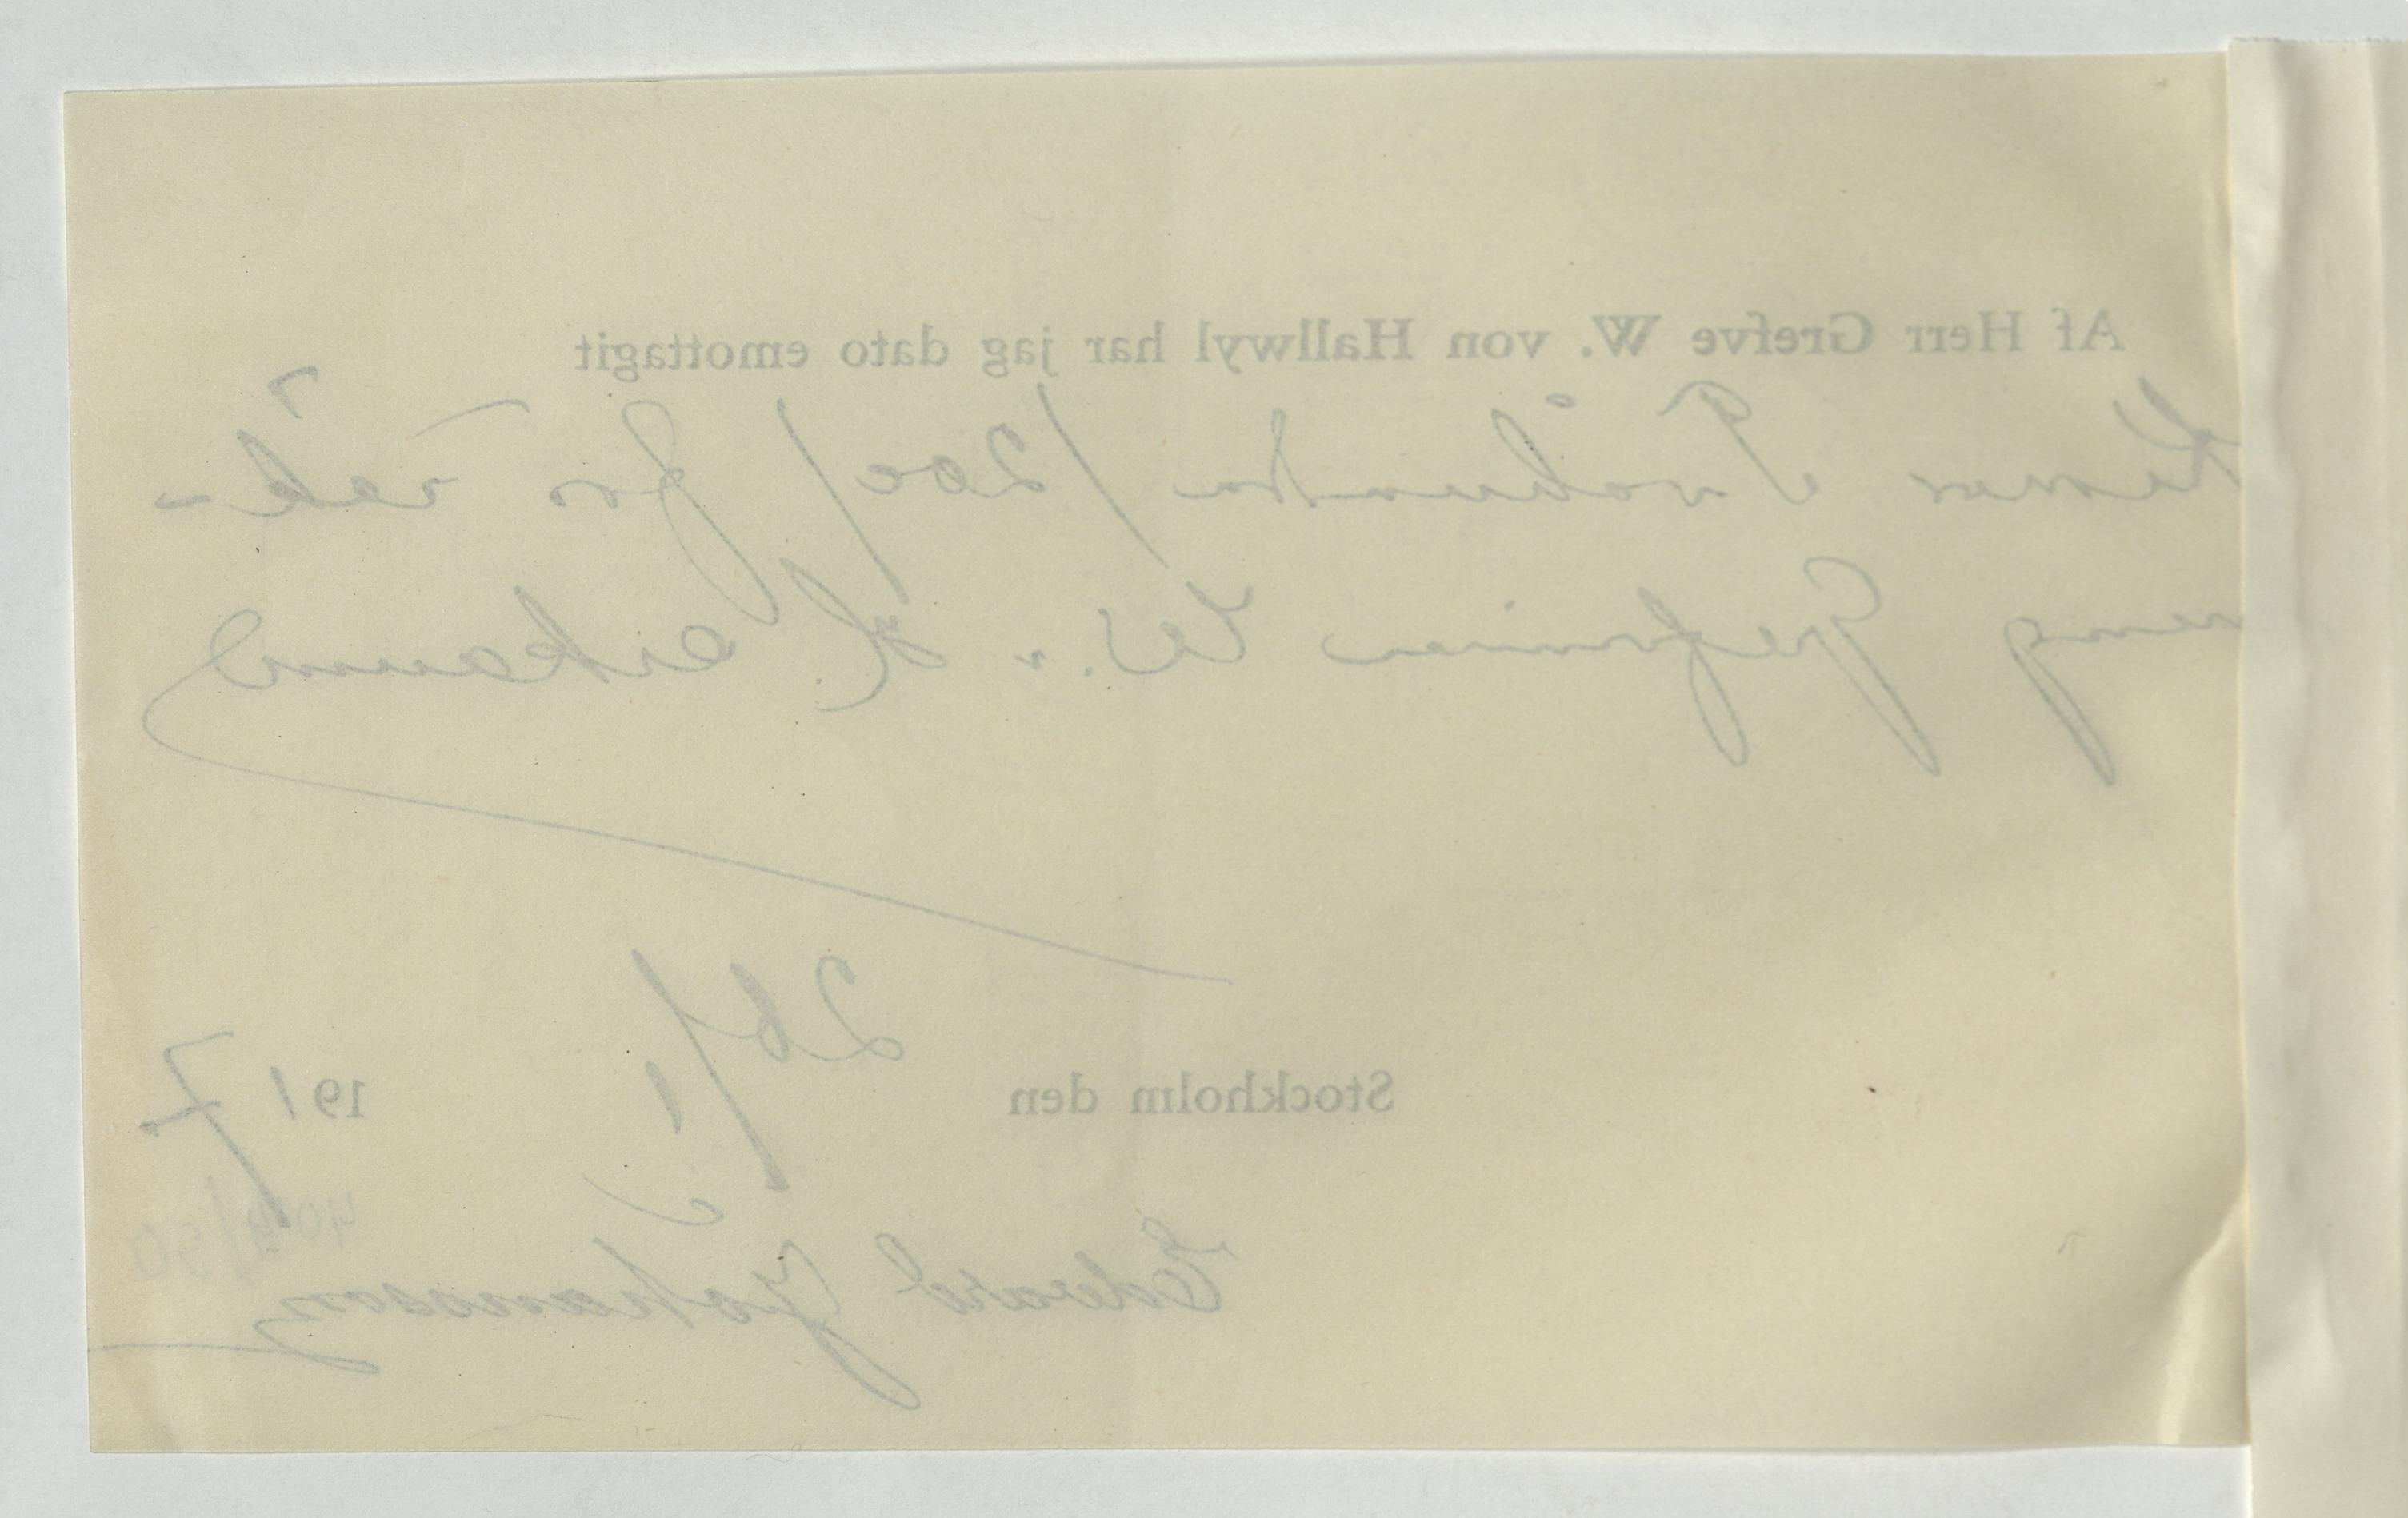 Af Herr Grefve W. von Hallwyl har jag dato emottagit
Kronor Tvåhundra /200/ för räk-
ning Grefvinnan W. v. H. erkännes
26/1
Stockholm den 1917
Edvard Johansson